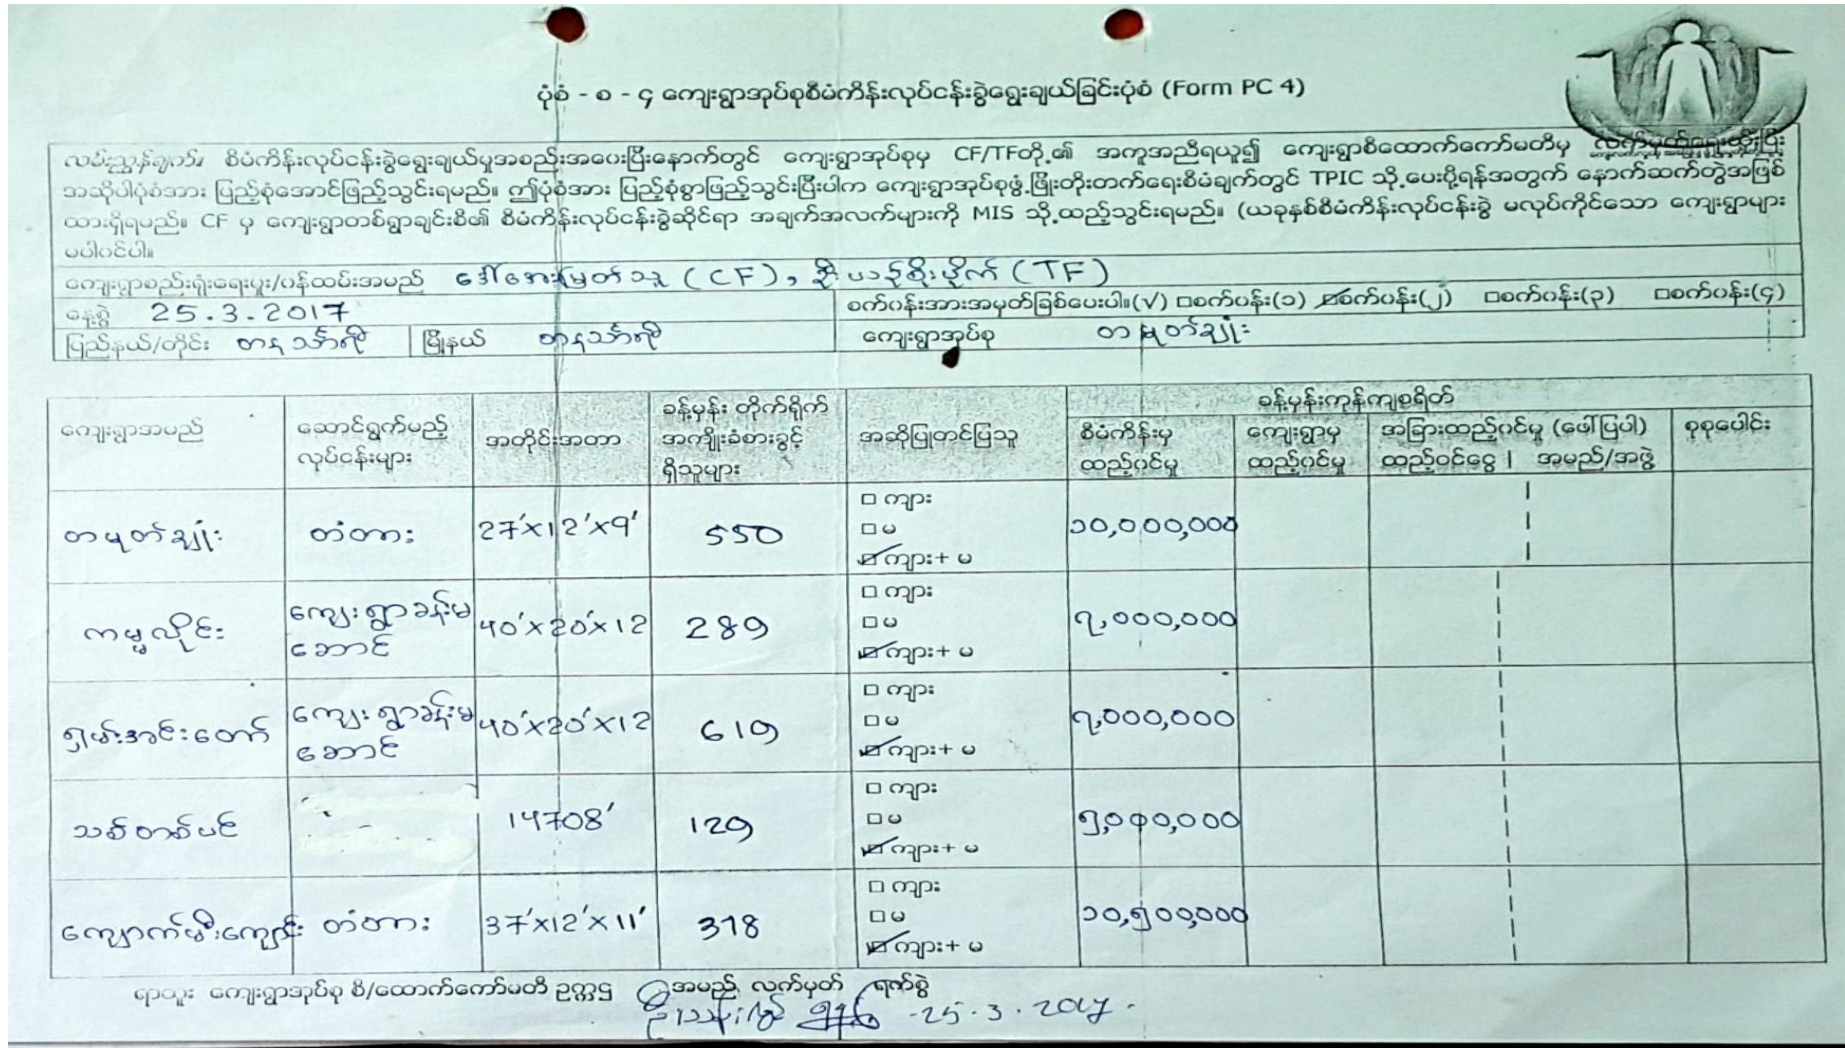 ပုံစံ - စ - ၄ ကျေးရွာအုပ်စုစီမံကိန်းလုပ်ငန်းခွဲရွေးချယ်ခြင်းပုံစံ (Form PC 4)
လမ်းညွှန်ချက်။ စီမံကိန်းလုပ်ငန်းခွဲရွေးချယ်မှုအစည်းအဝေးပြီးနောက်တွင် ကျေးရွာအုပ်စုမှ CF/TFတို့၏ အကူအညီရယူ၍ ကျေးရွာစီထောက်ကော်မတီမှ လက်မှတ်ရေးထိုးပြီး
အဆိုပါပုံစံအား ပြည့်စုံအောင်ဖြည့်သွင်းရမည်။ ဤပုံစံအား ပြည့်စုံစွာဖြည့်သွင်းပြီးပါက ကျေးရွာအုပ်စုဖွံ့ဖြိုးတိုးတက်ရေးစီမံချက်တွင် TPIC သို့ပေးပို့ရန်အတွက် နောက်ဆက်တွဲအဖြစ်
ထားရှိရမည်။ CF မှ ကျေးရွာတစ်ရွာချင်းစီ၏ စီမံကိန်းလုပ်ငန်းခွဲဆိုင်ရာ အချက်အလက်များကို MIS သို့ထည့်သွင်းရမည်။ (ယခုနှစ်စီမံကိန်းလုပ်ငန်းခွဲ မလုပ်ကိုင်သော ကျေးရွာများ
မပါဝင်ပါ။
ကျေးရွာစည်းရုံးရေးမှူး/ဝန်ထမ်းအမည် ဒေါ်အေးမြတ်သူ (CF), ဦးယဉ်စိုးပိုက် (TF)
နေ့စွဲ 25.3.2017 စက်ဝန်းအားအမှတ်ခြစ်ပေးပါ။(√) □စက်ဝန်း(၁) ☑စက်ဝန်း(၂) □စက်ဝန်း(၃) □စက်ဝန်း(၄)
ပြည်နယ်/တိုင်း တနင်္သာရီ မြို့နယ် တနင်္သာရီ ကျေးရွာအုပ်စု တမုတ်ချုံး
ကျေးရွာအမည် ဆောင်ရွက်မည့် လုပ်ငန်းများ အတိုင်းအတာ ခန့်မှန်း တိုက်ရိုက် အကျိုးခံစားခွင့် ရှိသူများ အဆိုပြုတင်ပြသူ ခန့်မှန်းကုန်ကျစရိတ်
စီမံကိန်းမှ ထည့်ဝင်မှု ကျေးရွာမှ ထည့်ဝင်မှု အခြားထည့်ဝင်မှု (ဖေါ်ပြပါ) ထည့်ဝင်ငွေ | အမည်/အဖွဲ့ စုစုပေါင်း
တမုတ်ချုံး တံတား 27'x12'x9' 550 □ ကျား □ မ ☑ ကျား+ မ ၁၀,၀၀၀,၀၀၀
ကမ္မလိုင်း ကျေးရွာခန်းမ ဆောင် 40'x20'x12 289 □ ကျား □ မ ☑ ကျား+ မ ၇,၀၀၀,၀၀၀
ရှမ်းအင်းတော် ကျေးရွာခန်းမ ဆောင် 40'x20'x12 619 □ ကျား □ မ ☑ ကျား+ မ ၇,၀၀၀,၀၀၀
သစ်တစ်ပင် 14708' 129 □ ကျား □ မ ☑ ကျား+ မ
ကျောက်မီးကျောင်း တံတား 37'x12'x11' 318 □ ကျား □ မ ☑ ကျား+ မ ၁၀,၅၀၀,၀၀၀
ရာထူး ကျေးရွာအုပ်စု စီ/ထောက်ကော်မတီ ဥက္ကဋ္ဌ အမည်, လက်မှတ် ရက်စွဲ
25.3.2017